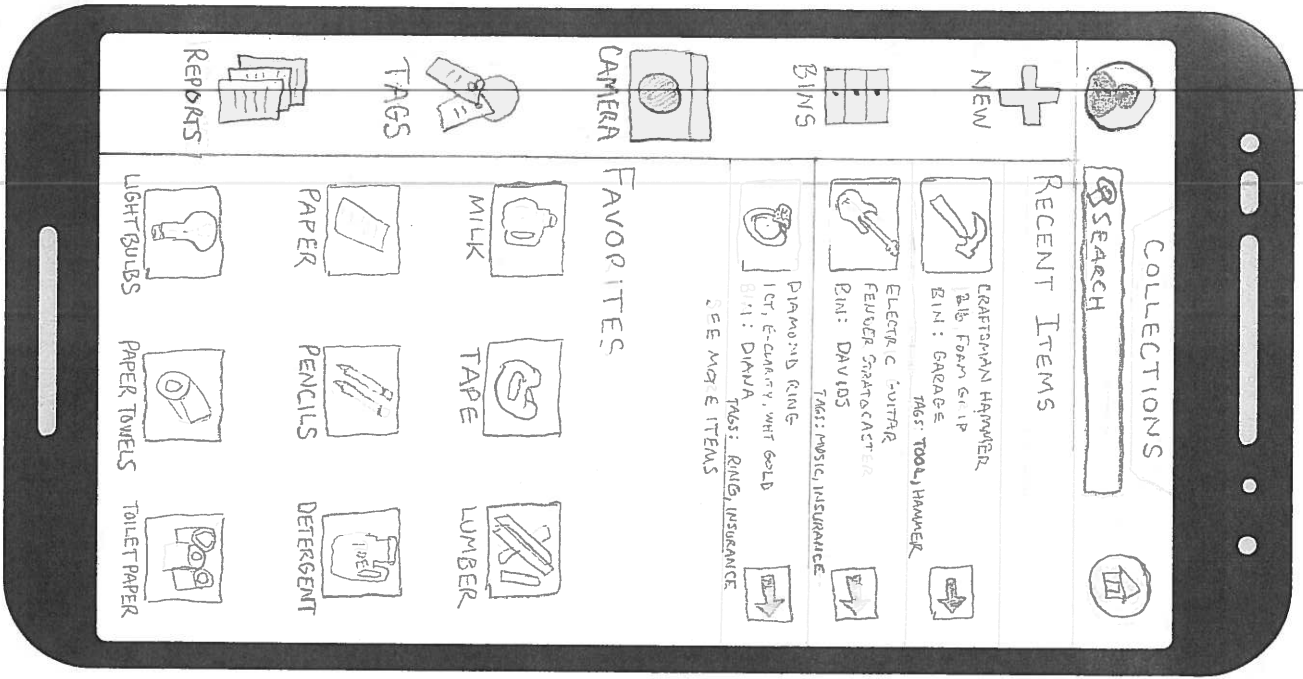 COLLECTIONS
SEARCH
NEW
BINS
CAMERA
TAGS
REPORTS
RECENT ITEMS
CRAFTSMAN HAMMER
12lb FOAM GRIP
BIN: GARAGE
TAGS: TOOL, HAMMER
ELECTRIC GUITAR
FENDER STRATOCASTER
BIN: DAVIDS
TAGS: MUSIC, INSURANCE
DIAMOND RING
1CT, E-CLARITY, WHT GOLD
BIN: DIANA
TAGS: RING, INSURANCE
SEE MORE ITEMS
FAVORITES
MILK TAPE LUMBER
PAPER PENCILS DETERGENT
LIGHT BULBS PAPER TOWELS TOILET PAPER